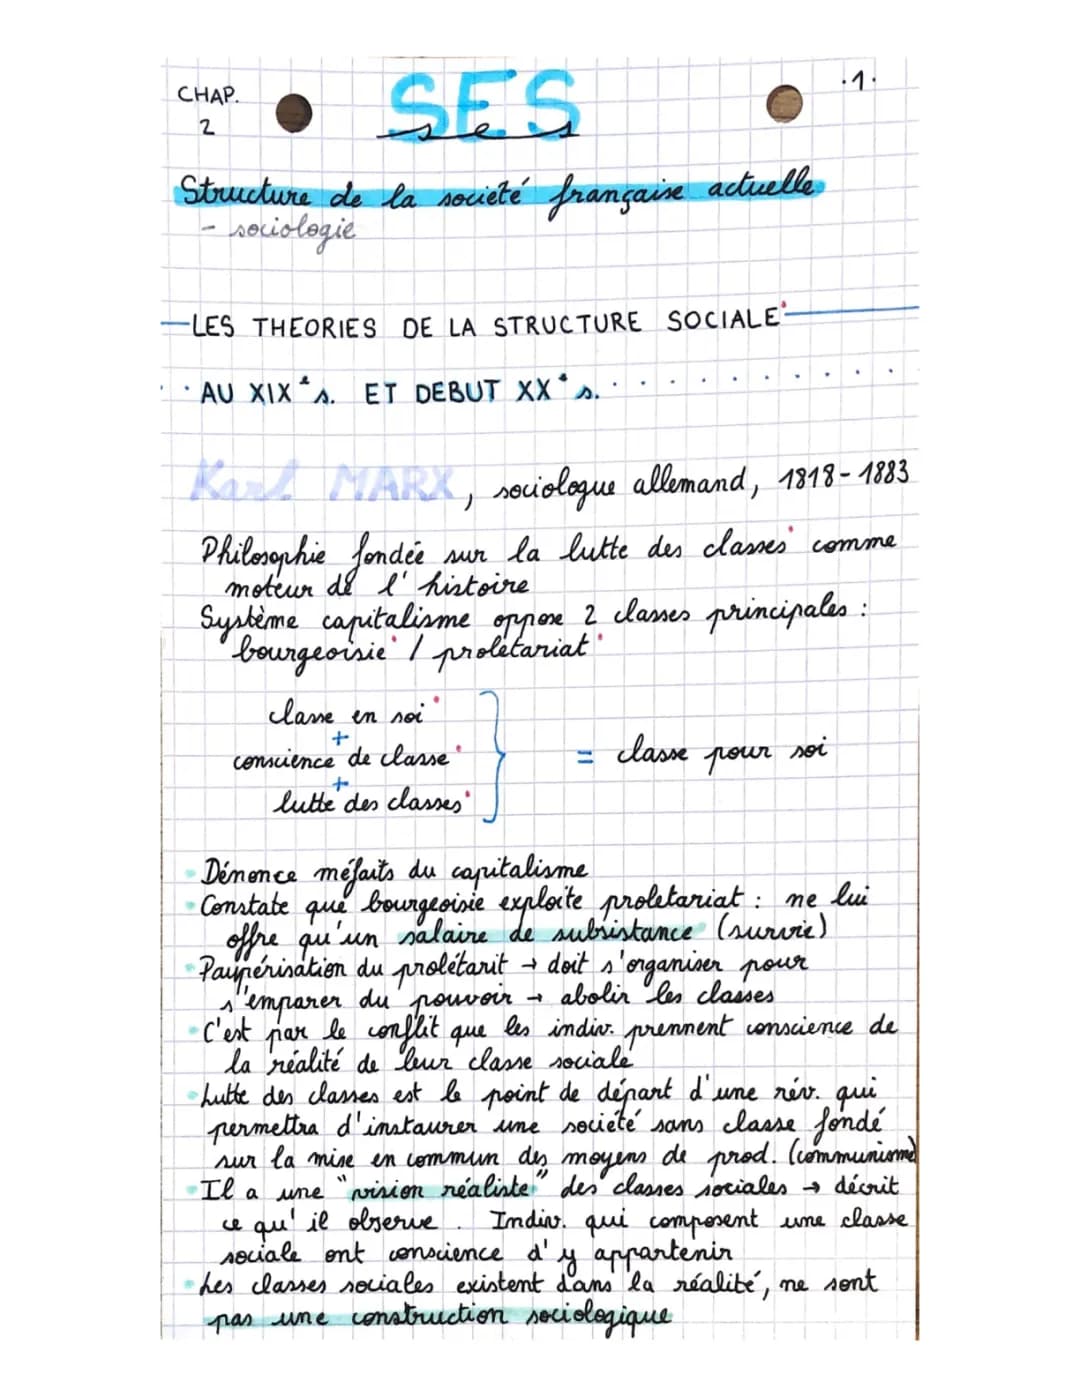 CHAP.
2
SES
ses
.1.
Structure de la société française actuelle
- sociologie
LES THEORIES DE LA STRUCTURE SOCIALE
AU XIXᵉ s. ET DEBUT XXᵉ s.
Karl MARX, sociologue allemand, 1818-1883
Philosophie fondée sur la lutte des classes comme
moteur de l'histoire
Système capitalisme oppose 2 classes principales :
bourgeoisie / prolétariat
classe en soi
+
conscience de classe
+
lutte des classes
= classe pour soi
Dénonce méfaits du capitalisme
Constate que bourgeoisie exploite proletariat : ne lui
offre qu'un salaire de subsistance (survie)
Paupérisation du prolétarit → doit s'organiser pour
s'emparer du pouvoir → abolir les classes
C'est par le conflit que les indiv. prennent conscience de
la réalité de leur classe sociale
Lutte des classes est le point de départ d'une rév. qui
permettra d'instaurer une société sans classe fondé
sur la mise en commun des moyens de prod. (communisme)
Il a une "vision réaliste" des classes sociales → décrit
ce qu'il observe. Indiv. qui composent une classe
sociale ont conscience d'y appartenir
Les classes sociales existent dans la réalité, ne sont
pas une construction sociologique